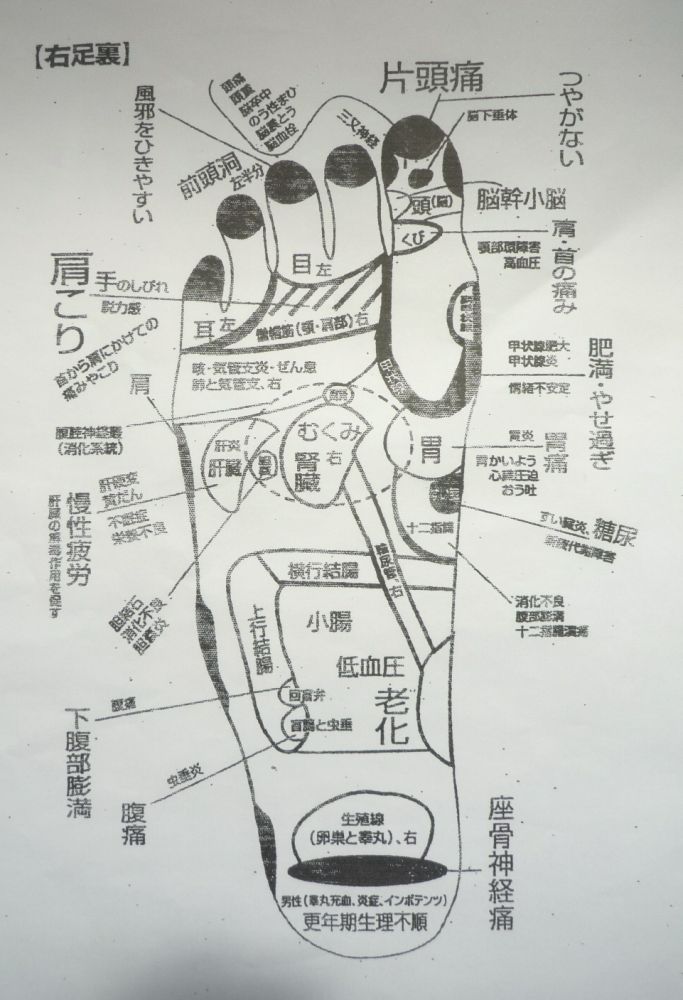 【右足裏】
頭痛
頭重
脳卒中
のう性まひ
脳震とう
脳血栓
三叉神経
片頭痛
つやがない
脳下垂体
風邪をひきやすい
前頭洞
左半分
頭(脳)
脳幹小脳
くび
頸部障害
高血圧
肩・首の痛み
目左
肩こり
手のしびれ
脱力感
耳左
僧帽筋(頸・肩部)右
首から肩にかけての
痛みやこり
咳・気管支炎・ぜん息
肺と気管支、右
甲状腺肥大
甲状腺炎
情緒不安定
肥満・やせ過ぎ
肩
腹腔神経叢
(消化系統)
肝炎
肝臓
むくみ
腎臓
右
胃
胃炎
胃痛
胃かいよう
心臓圧迫
おう吐
肝硬変
黄だん
不眠症
栄養不良
慢性疲労
肝臓の解毒作用を促す
すい臓炎、糖尿
十二指腸
消化不良
十二指腸潰瘍
胆結石
消化不良
胆嚢炎
横行結腸
上行結腸
小腸
低血圧
老化
回盲弁
盲腸と虫垂
腹痛
下腹部膨満
虫垂炎
腹痛
生殖線
(卵巣と睾丸)、右
座骨神経痛
男性(睾丸充血、炎症、インポテンツ)
更年期生理不順